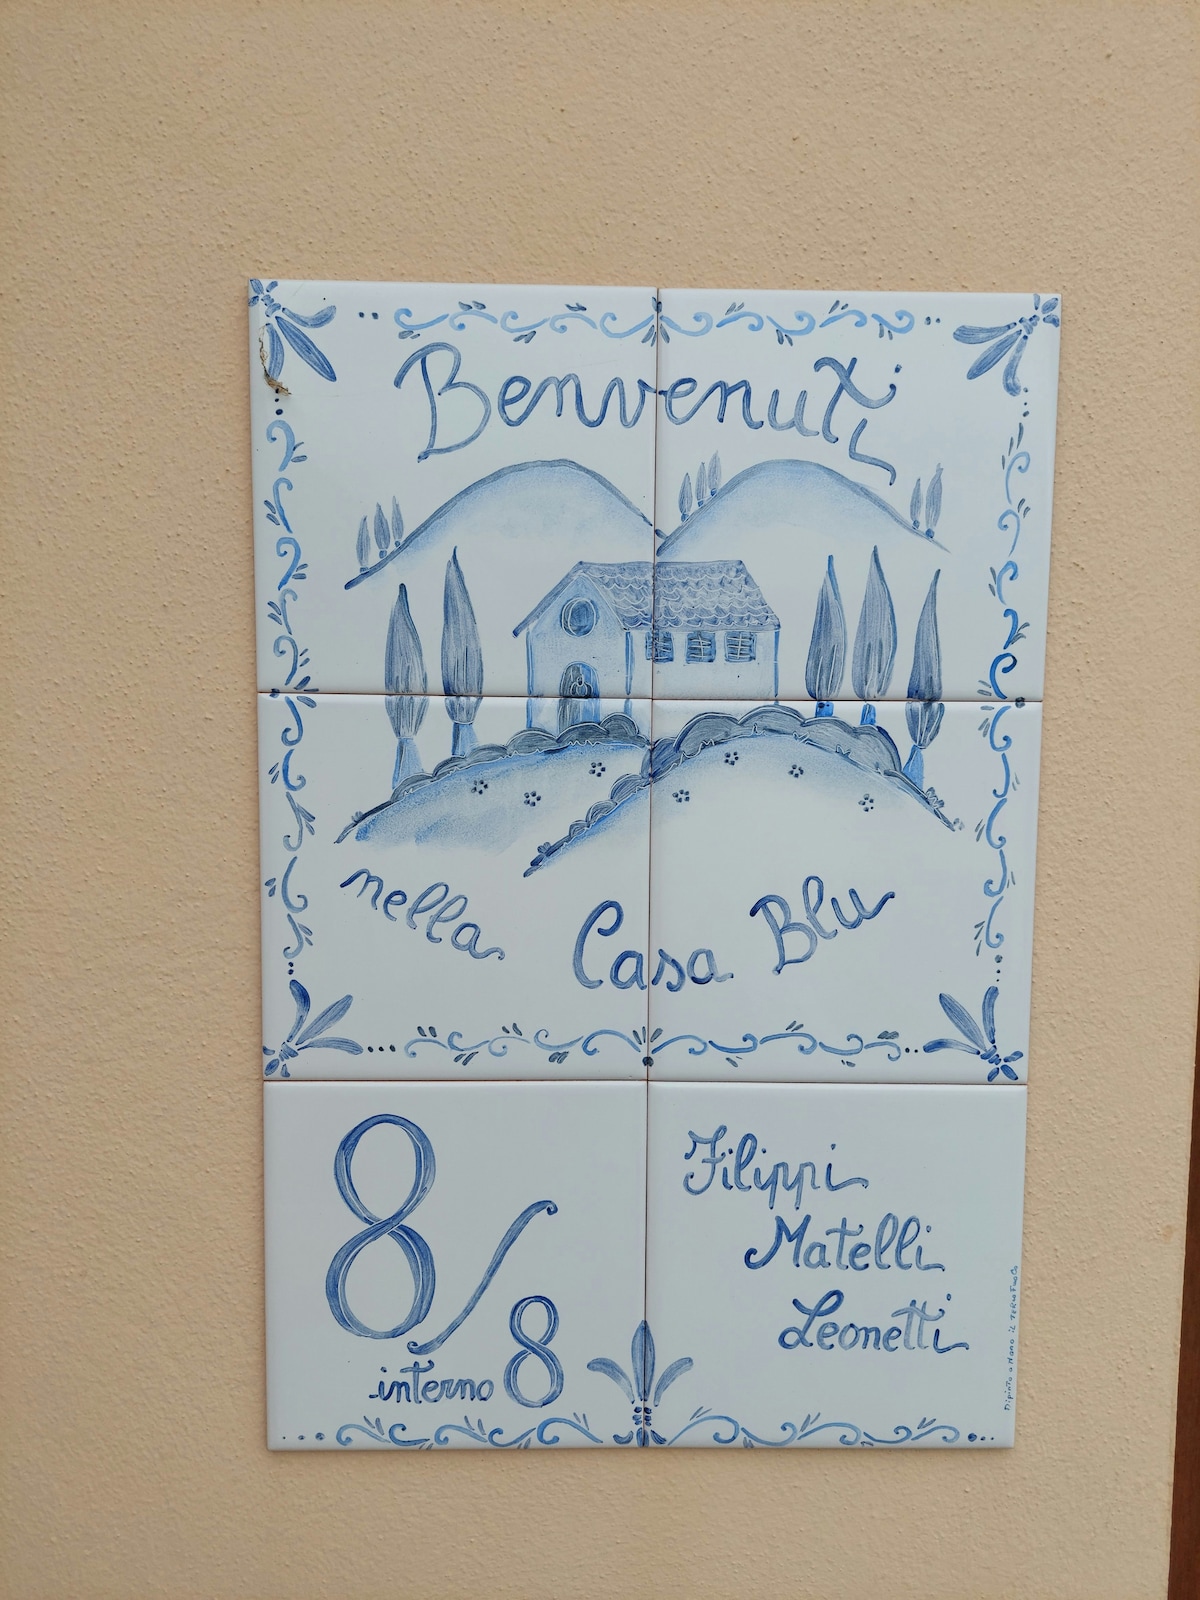 Benvenuti
nella Casa Blu
8/8
interno
Filippi
Matelli
Leonetti
Dipinto a Mano iL TERZO FuoCo